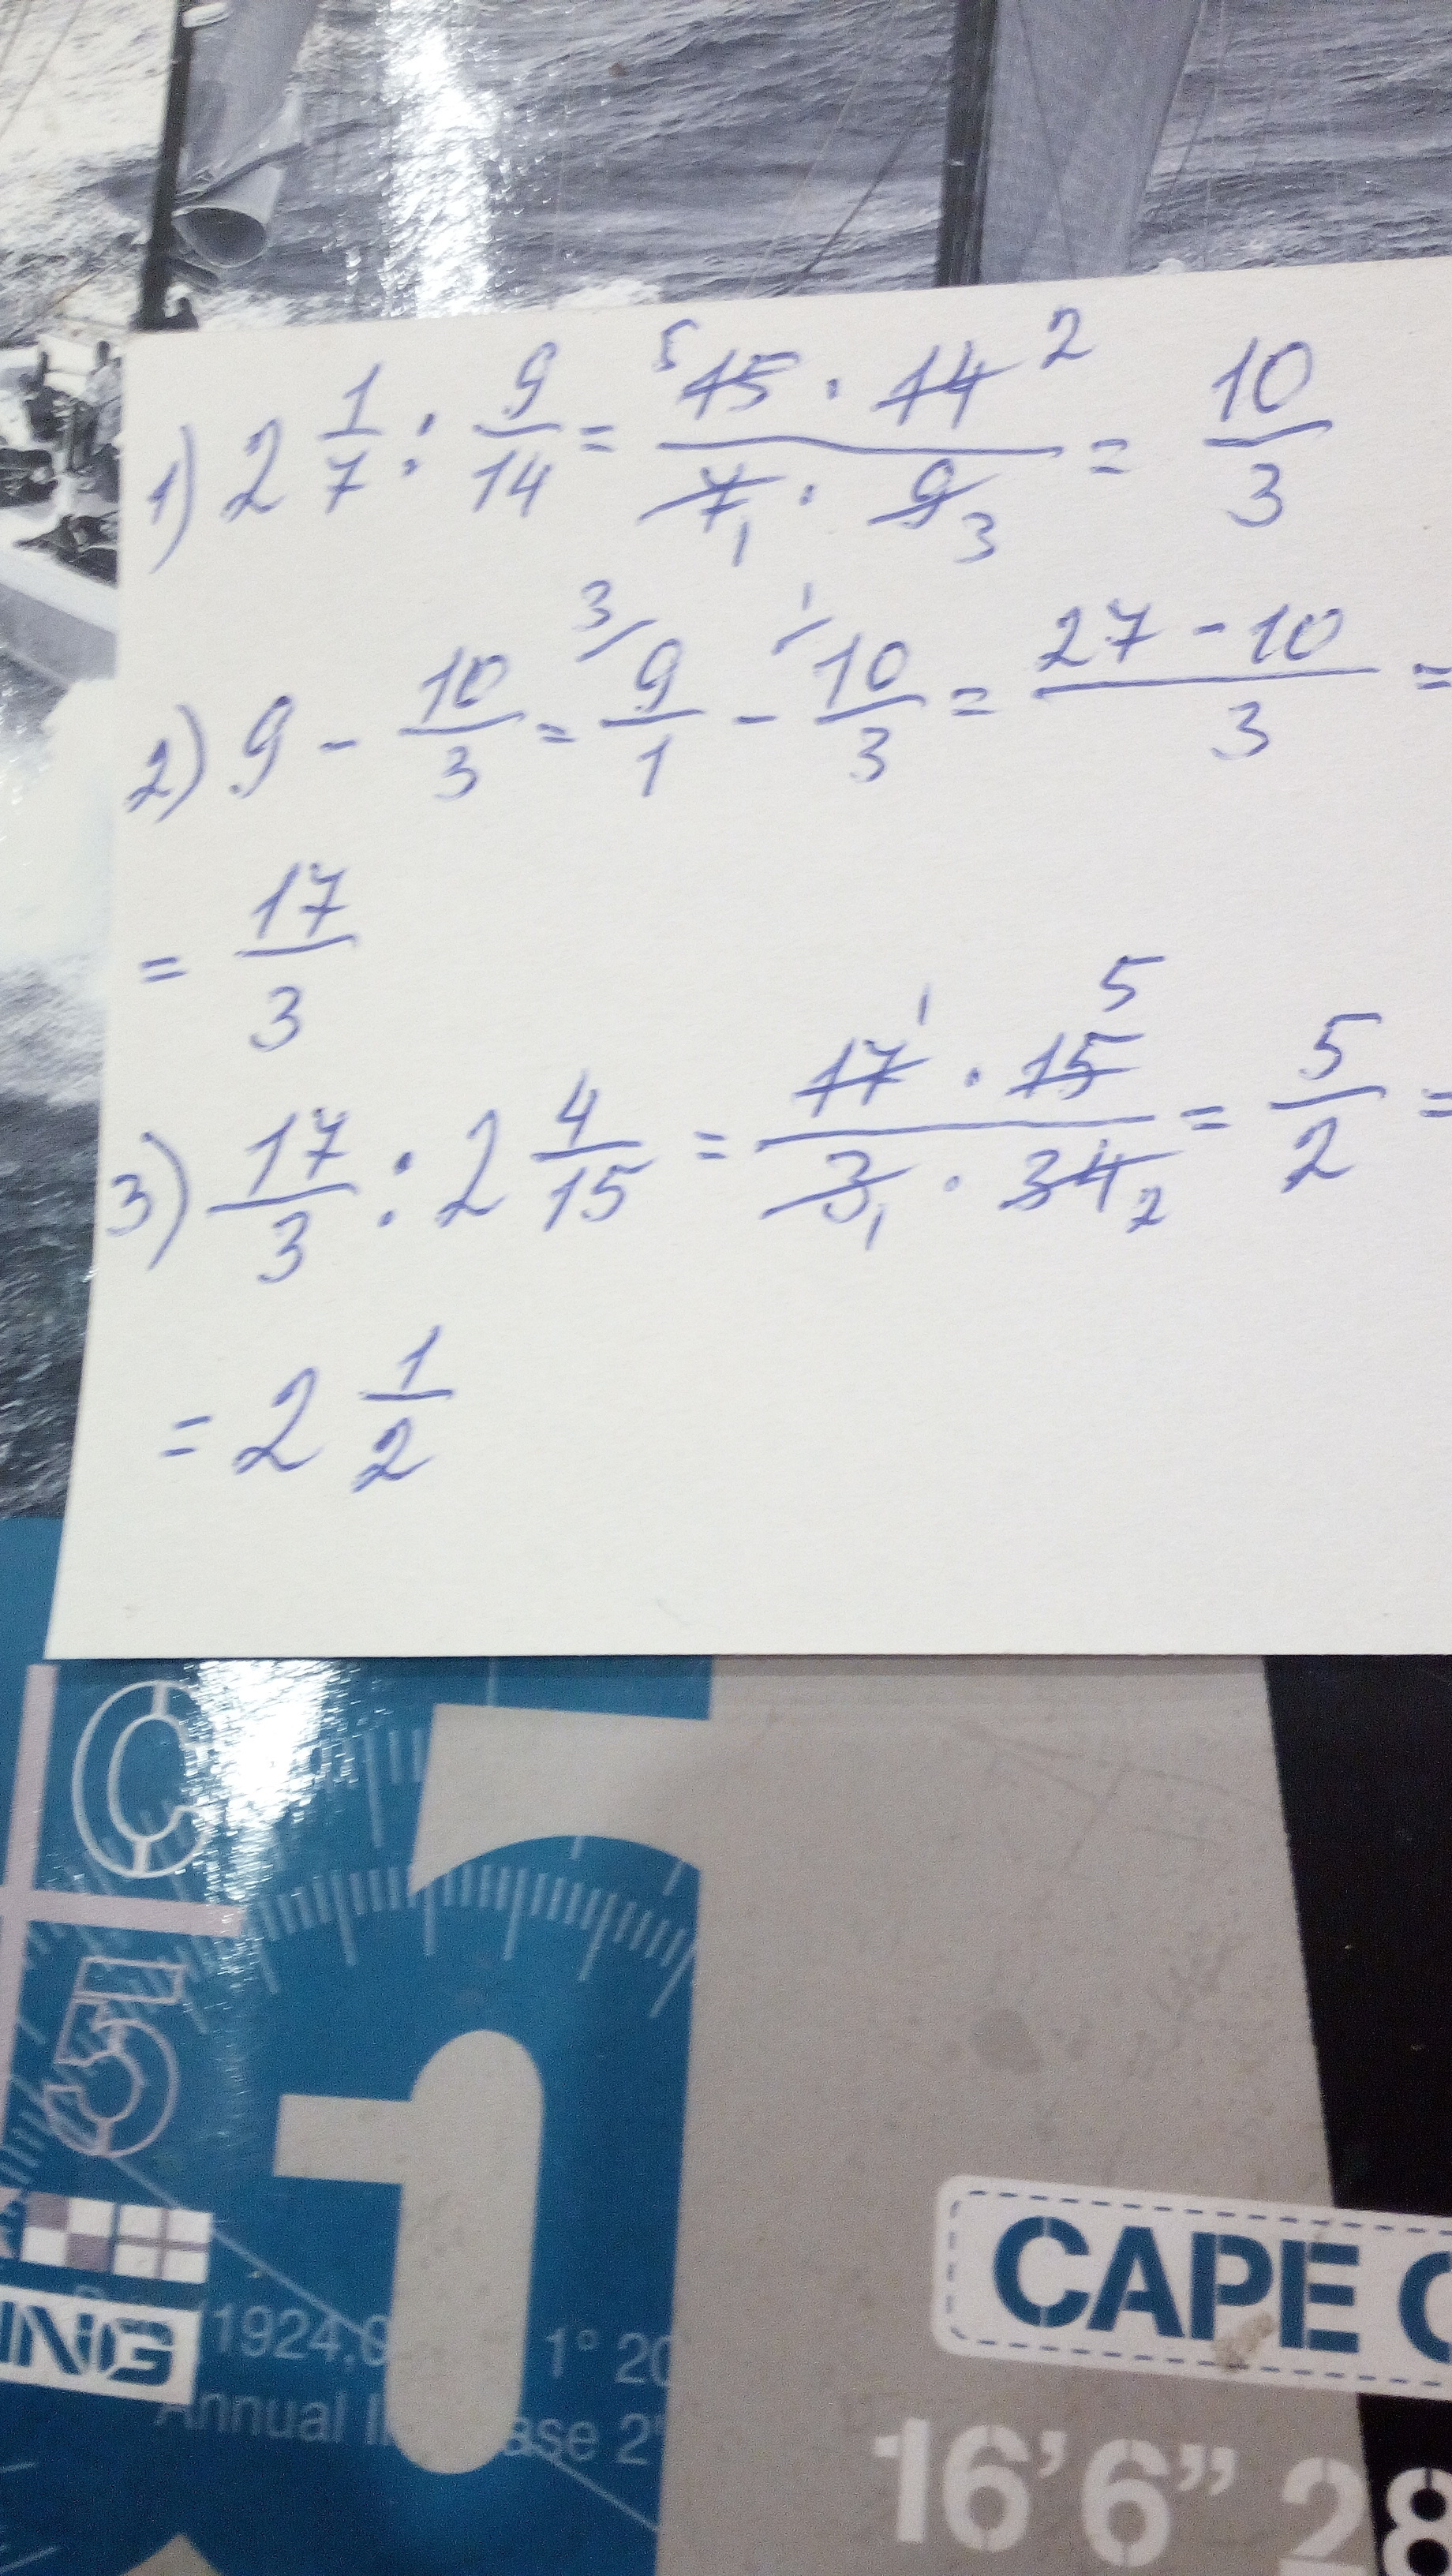 1) 2 1/7 : 9/14 = 5 15 · 14 2 / 7 1 · 9 3 = 10/3
2) 9 - 10/3 = 3/ 9/1 - 1/ 10/3 = 27 - 10 / 3 =
= 17/3
3) 17/3 : 2 4/15 = 17 1 · 15 5 / 3 1 · 34 2 = 5/2 =
= 2 1/2
C
5
1
ING
1924,
1° 20
Annual
ase 2°
CAPE
16’6” 28